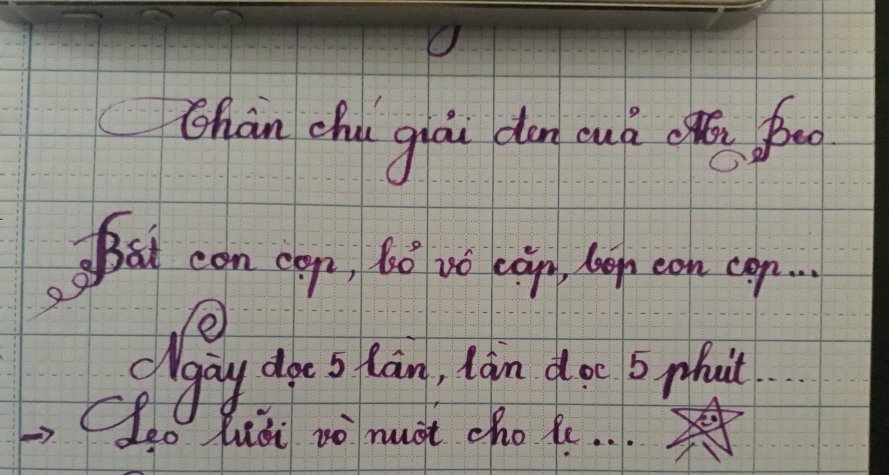 Thần chú giải đen cuả Mr Beo.
Bắt con cọp, bỏ vô cặp, bóp con cọp...
Ngày đọc 5 lần, lần đọc 5 phút....
→ Lẹo lưỡi vò nuốt cho lẹ...